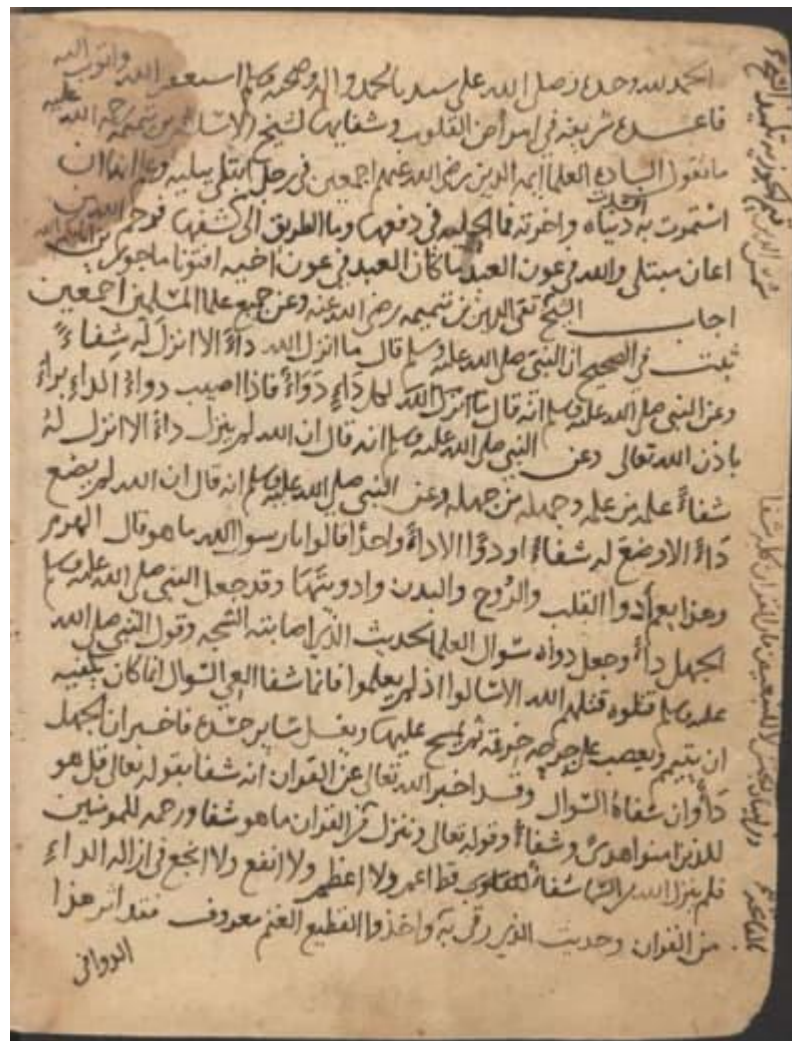 الحمد لله وحده وصلى الله على سيدنا محمد واله وصحبه وسلم استغفر الله واتوب اليه
قاعده شريفه في امراض القلوب وشفايها لشيخ الاسلام بن تيميه رحمه الله عليه
ما تقول الساده العلما ايمه الدين رضى الله عنهم اجمعين في رجل ابتلى ببليه وعلم انها ان
استمرت به افسدت دنياه واخرته فما الحيله في دفعها وما الطريق الى كشفها فرحم الله من
اعان مبتلى والله في عون العبد ما كان العبد في عون اخيه افتونا ماجورين
اجاب الشيخ تقى الدين بن تيميه رضى الله عنه وعن جميع علما المسلمين اجمعين
ثبت في الصحيح ان النبي صلى الله عليه وسلم قال ما انزل الله داءً الا انزل له شفاءً
وعن النبي صلى الله عليه وسلم انه قال ما انزل الله لكل داءٍ دَوَاءً فاذا اصيب دواءُ الداءِ براءَ
باذن الله تعالى وعن النبي صلى الله عليه وسلم انه قال ان الله لم ينزل داءً الا انزل لهُ
شفاءً علمه من علمه وجهله من جهله وعن النبي صلى الله عليه وسلم انه قال ان الله لم يضع
دَاءً الا وضعَ له شفاءً او دوَاءً الا داءً واحدًا قالوا يا رسول الله ما هو قال الهرم
وهذا يعم أدوا القلب والرُوح والبدن وادويتها وقد جعل النبي صلى الله عليه وسلم
الجهل داءً وجعل دواه سوال العلما لحديث الذي اصابته الشجه وقول النبي صلى الله
عليه وسلم قتلوه قتلهم الله الا سالوا اذ لم يعلموا فانما شفا العي السوال انما كان يكفيه
ان يتيمم ويعصب على جرحه خرقه ثم يمسح عليها ويغسل ساير جسده فاخبر ان الجهل
دَاءٌ وان شفاهُ السوال وقد اخبر الله تعالى عن القران انه شفا بقوله تعالى قل هو
للذين امنوا هدىً وشفاءٌ وقوله تعالى وننزل من القران ما هو شفا ورحمه للمومنين
فلم ينزل الله من السما شفاءً للقلوب قط اعم ولا اعظم ولا انفع ولا انجع في ازاله الداءِ
من القران وحديث الذي رقى به واخذوا القطيع الغنم معروف فقد اثر هذا
الدوا في
شمس الدين
من لبيان الجنس لا للتبعيض فان القران كله شفا